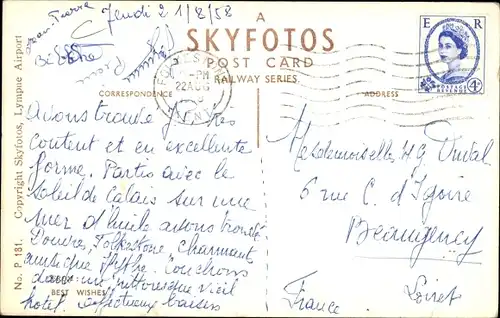 Jeudi 21/8/58
A
SKYFOTOS
POST CARD
RAILWAY SERIES.
CORRESPONDENCE
ADDRESS
PM
22 AUG
KENT
E R
POSTAGE REVENUE
4D
Avons trouvé
content et en excellente
forme. Partis avec le
soleil de Calais sur une
mer d'huile avons trouvé
Douvres, Folkestone, charmant
Hythe. Couchons
dans un pittoresque vieil
hotel. Affectueux baisers
BEST WISHES
Mesdemoiselles H G
6 rue C. d'Igoire
Beaugency
Loiret
France
No. P 181. Copyright Skyfotos, Lympne Airport